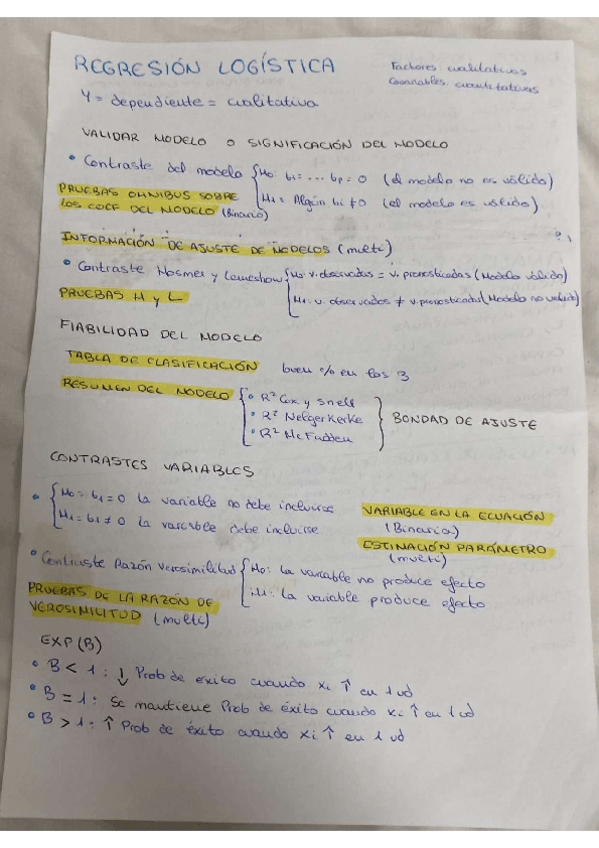 REGRESIÓN LOGÍSTICA
Factores: cualitativas
Covariables: cuantitativas
Y = dependiente = cualitativa
VALIDAR MODELO O SIGNIFICACIÓN DEL MODELO
• Contraste del modelo { H0: b1 = ... bp = 0 (el modelo no es válido)
H1 = Algún bi ≠ 0 (el modelo es válido)
PRUEBAS OMNIBUS SOBRE
LOS COEF DEL MODELO (Binario)
INFORMACIÓN DE AJUSTE DE MODELOS (multi)
• Contraste Hosmer y Lemeshow { H0: v. observadas = v. pronosticadas (Modelo válido)
H1: v. observados ≠ v. pronosticadas (Modelo no valido)
PRUEBAS H y L
FIABILIDAD DEL MODELO
TABLA DE CLASIFICACIÓN buen % en los 3
RESUMEN DEL MODELO { • R² Cox y Snell
• R² Nelgerkerke } BONDAD DE AJUSTE
• R² McFadden
CONTRASTES VARIABLES
• { H0 = b1 = 0 La variable no debe incluirse
H1 = b1 ≠ 0 La variable debe incluirse
VARIABLE EN LA ECUACIÓN
(Binaria)
ESTINACIÓN PARÁMETRO
(multi)
• Contraste Razón Verosimilitud { H0: La variable no produce efecto
H1: La variable produce efecto
PRUEBAS DE LA RAZÓN DE
VEROSIMILITUD (multi)
EXP(B)
• B < 1: ↓ Prob de éxito cuando xi ↑ en 1 ud
• B = 1: Se mantiene Prob de éxito cuando xi ↑ en 1 ud
• B > 1: ↑ Prob de éxito cuando xi ↑ en 1 ud